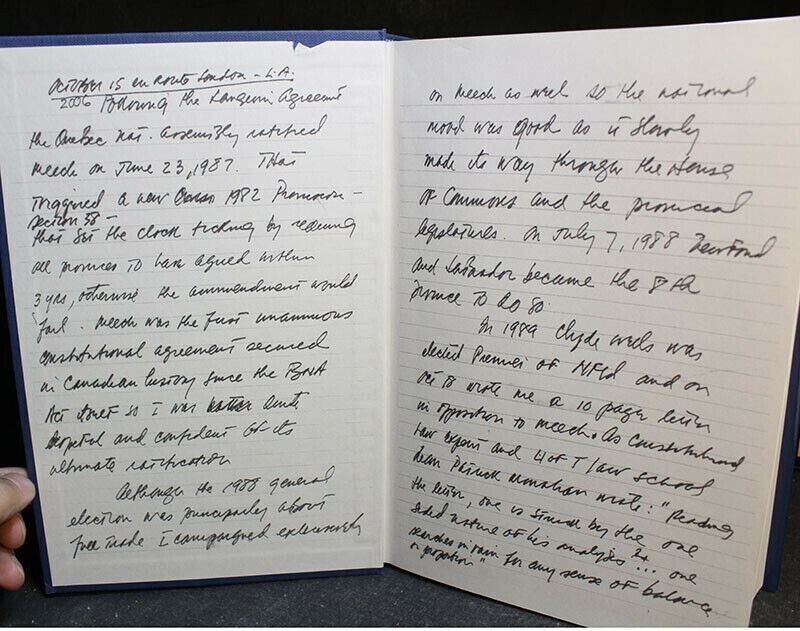 October 15 en route London - L.A.
2006 Following the Langevin Agreement
the Quebec Nat. Assembly ratified
Meech on June 23, 1987. That
triggered a new 1982 Provision -
Section 38 -
that set the clock ticking by requiring
all provinces to have agreed within
3 yrs, otherwise the ammendment would
fail. Meech was the first unanimous
constitutional agreement secured
in Canadian history since the BNA
Act itself so I was quite
hopeful and confident of its
ultimate ratification
Although the 1988 general
election was principally about
free trade I campaigned extensively
on Meech as well so the national
mood was good as it slowly
made its way through the House
of Commons and the provincial
legislatures. On July 7, 1988
and Labrador became the 8th
province to do so.
In 1989 Clyde Wells was
elected Premier of Nfld and on
Oct 18 wrote me a 10 page letter
in opposition to Meech. As constitutional
law expert and U of T law school
Dean Patrick Monahan wrote: "Reading
the letter, one is struck by the one
sided nature of his analysis ... one
searches in vain for any sense of balance
or proportion"